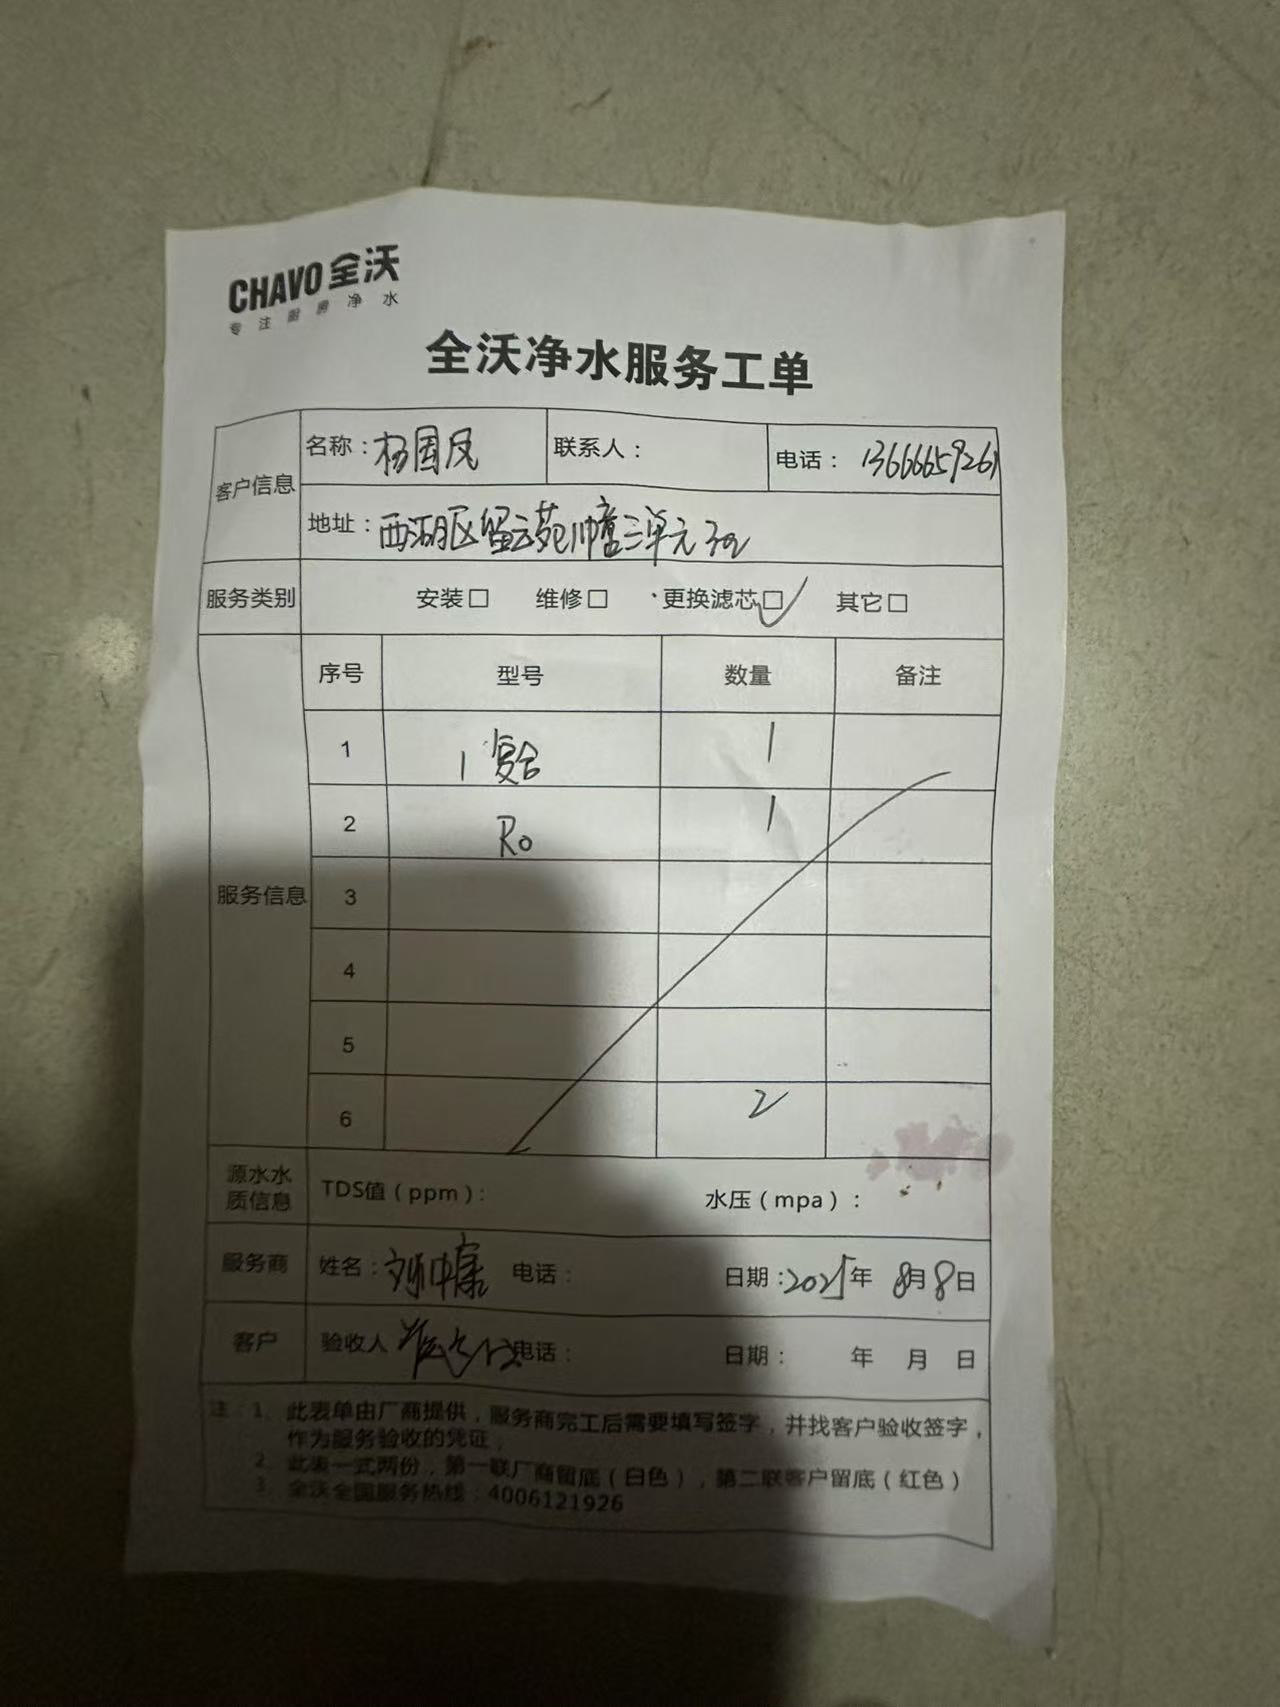 CHAVO全沃
专注厨房净水
全沃净水服务工单
客户信息
名称：杨国凤 联系人： 电话：13666659261
地址：西湖区留云苑 三单元
服务类别 安装□ 维修□ 更换滤芯□✓ 其它□
服务信息
序号 型号 数量 备注
1 1 复合 1
2 Ro 1
3
4
5
6 2
源水水质信息 TDS值（ppm）： 水压（mpa）：
服务商 姓名：刘中 电话： 日期：2025年 8月8日
客户 验收人 电话： 日期： 年 月 日
注：1、此表单由厂商提供，服务商完工后需要填写签字，并找客户验收签字，
作为服务验收的凭证；
2、此表一式两份，第一联厂商留底（白色），第二联客户留底（红色）
3、全沃全国服务热线：4006121926